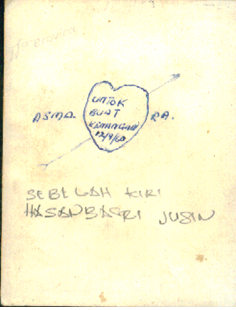 ASMA. UNTOK RA.
BUAT
KENANGAN
12/9/60
SEBELAH KIRI
HASANBASRI JUSIN